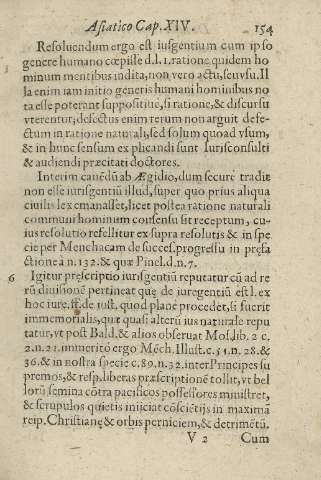 Asiatico Cap. XIV. 154
Resoluendum ergo est iusgentium cum ipso
genere humano cœpisse d.l.1. ratione quidem ho
minum mentibus indita, non vero actu, seu vsu. Il
la enim iam initio generis humani hominibus no
ta esse poterant suppositiuè, si ratione, & discursu
vterentur, defectus enim rerum non arguit defe-
ctum in ratione naturali, sed solum quoad vsum,
& in hunc sensum explicandi sunt Iurisconsulti
& audiendi præcitati doctores.
Interim cauēdū ab Ægidio, dum securè tradit
non esse iurisgentiū illud, super quo prius aliqua
ciuilis lex emanasset, licet postea ratione naturali
communi hominum consensu sit receptum, cu-
ius resolutio refellitur ex supra resolutis & in spe
cie per Menchacam de succes. progressu in præfa
ctione à n. 132. & quæ Pinel. d.n.7.
6 Igitur præscriptio iurisgentiū reputatur cū ad re
rū diuisionē pertineat quę de iuregentiū est l. ex
hoc iure. ff. de iust. quod planè procedet, si fuerit
immemorialis, quæ quasi alterū ius naturale repu
tatur, vt post Bald. & alios obseruat Mol. lib. 2 c.
2. n. 21. immeritò ergo Mēch. Illust. c. 51. n. 28. &
36. & in nostra specie c. 89. n. 32. inter Principes su
premos, & resp. liberas præscriptionē tollit, vt bel
lorū semina cōtra pacificos possessores ministret,
& scrupulos quietis inijciat cōsciētijs in maximā
reip. Christianę & orbis perniciem, & detrimētū.
V 2 Cum